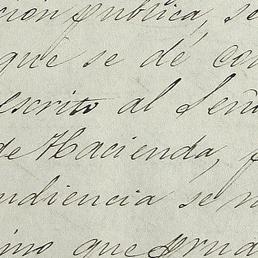 ción pública, se
que se dé con
escrito al Seño
de Hacienda, p
udiencia se n
ino que prud